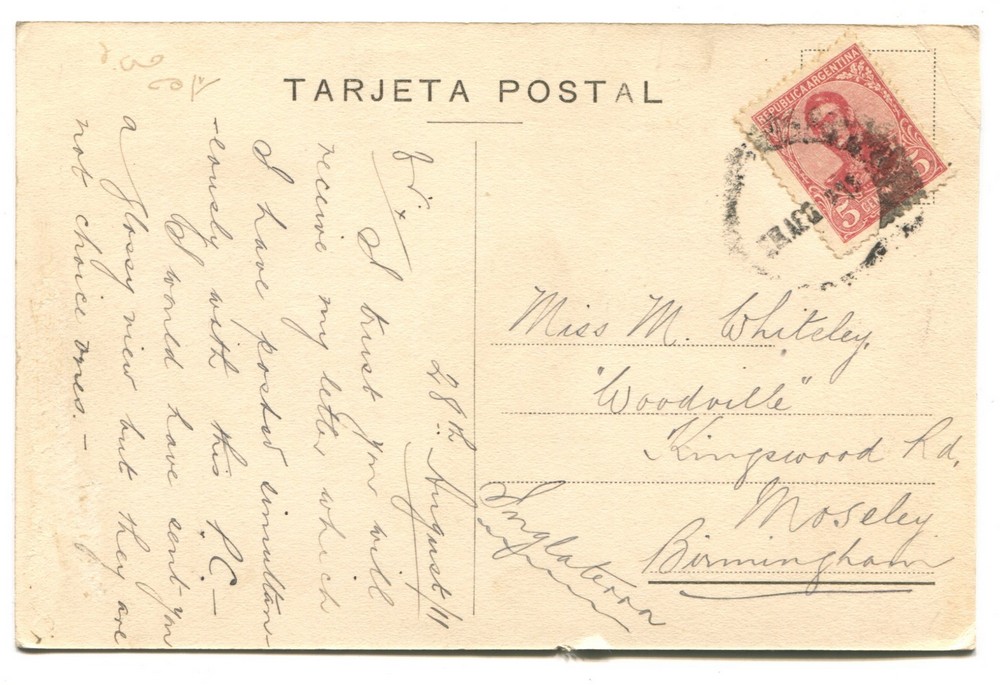 TARJETA POSTAL
REPUBLICA ARGENTINA
5 CENTAVOS 5
28th August/11
I trust you will
receive my letter which
I have posted simultan-
-eously with this P.C. -
I would have sent you
a glossy view but they are
not choice ones. -
Miss M. Whiteley,
"Woodville"
Kingswood Rd,
Moseley
Birmingham
Inglaterra